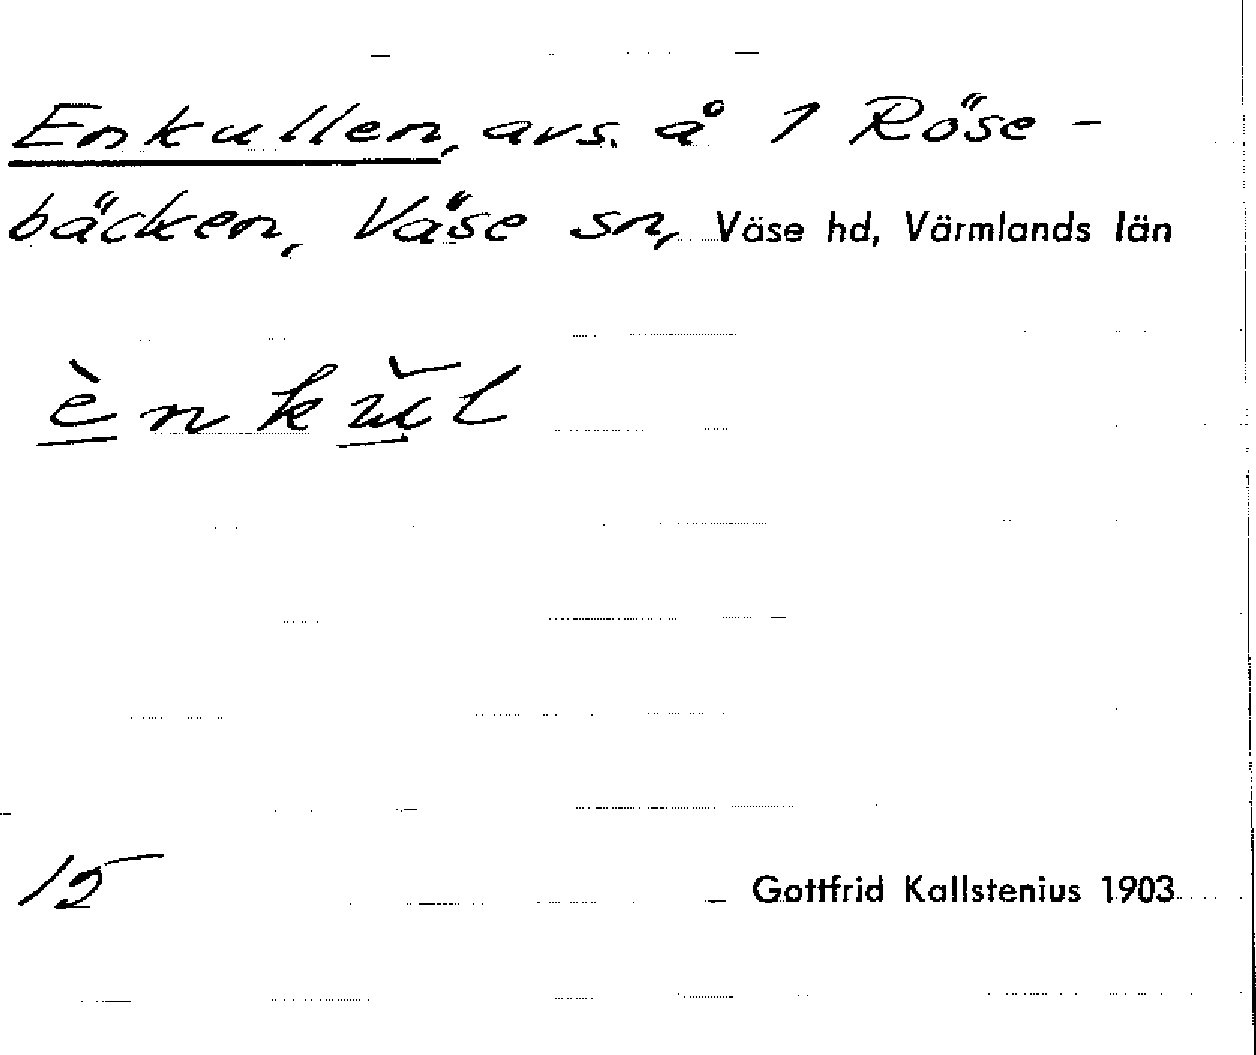 Enkullen, avs. å 1 Röse-
bäcken, Väse sn, Väse hd, Värmlands län
ènkŭl
15 Gottfrid Kallstenius 1903